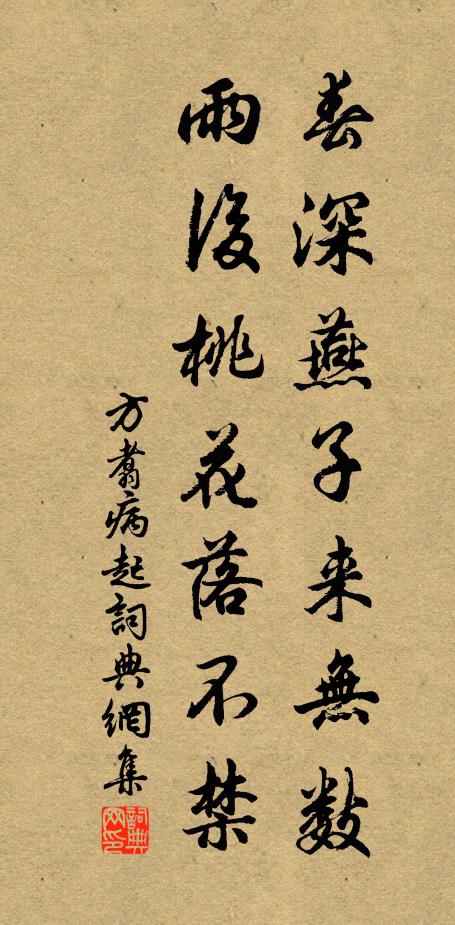 春深燕子来無数
雨後桃花落不禁
方翥病起詞典網集
詞典網印